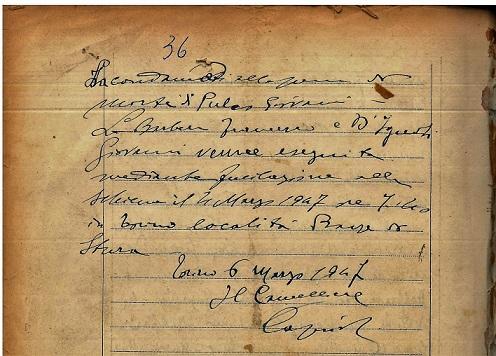 36
La condanna alla pena di
morte di Puleo Giovanni –
La Barbera Francesco e D'Ignoti
Giovanni venne eseguita
mediante fucilazione alla
schiena il 4 Marzo 1947 ore 7.40
in Torino località Basse di
Stura
Torino 6 Marzo 1947
Il Cancelliere